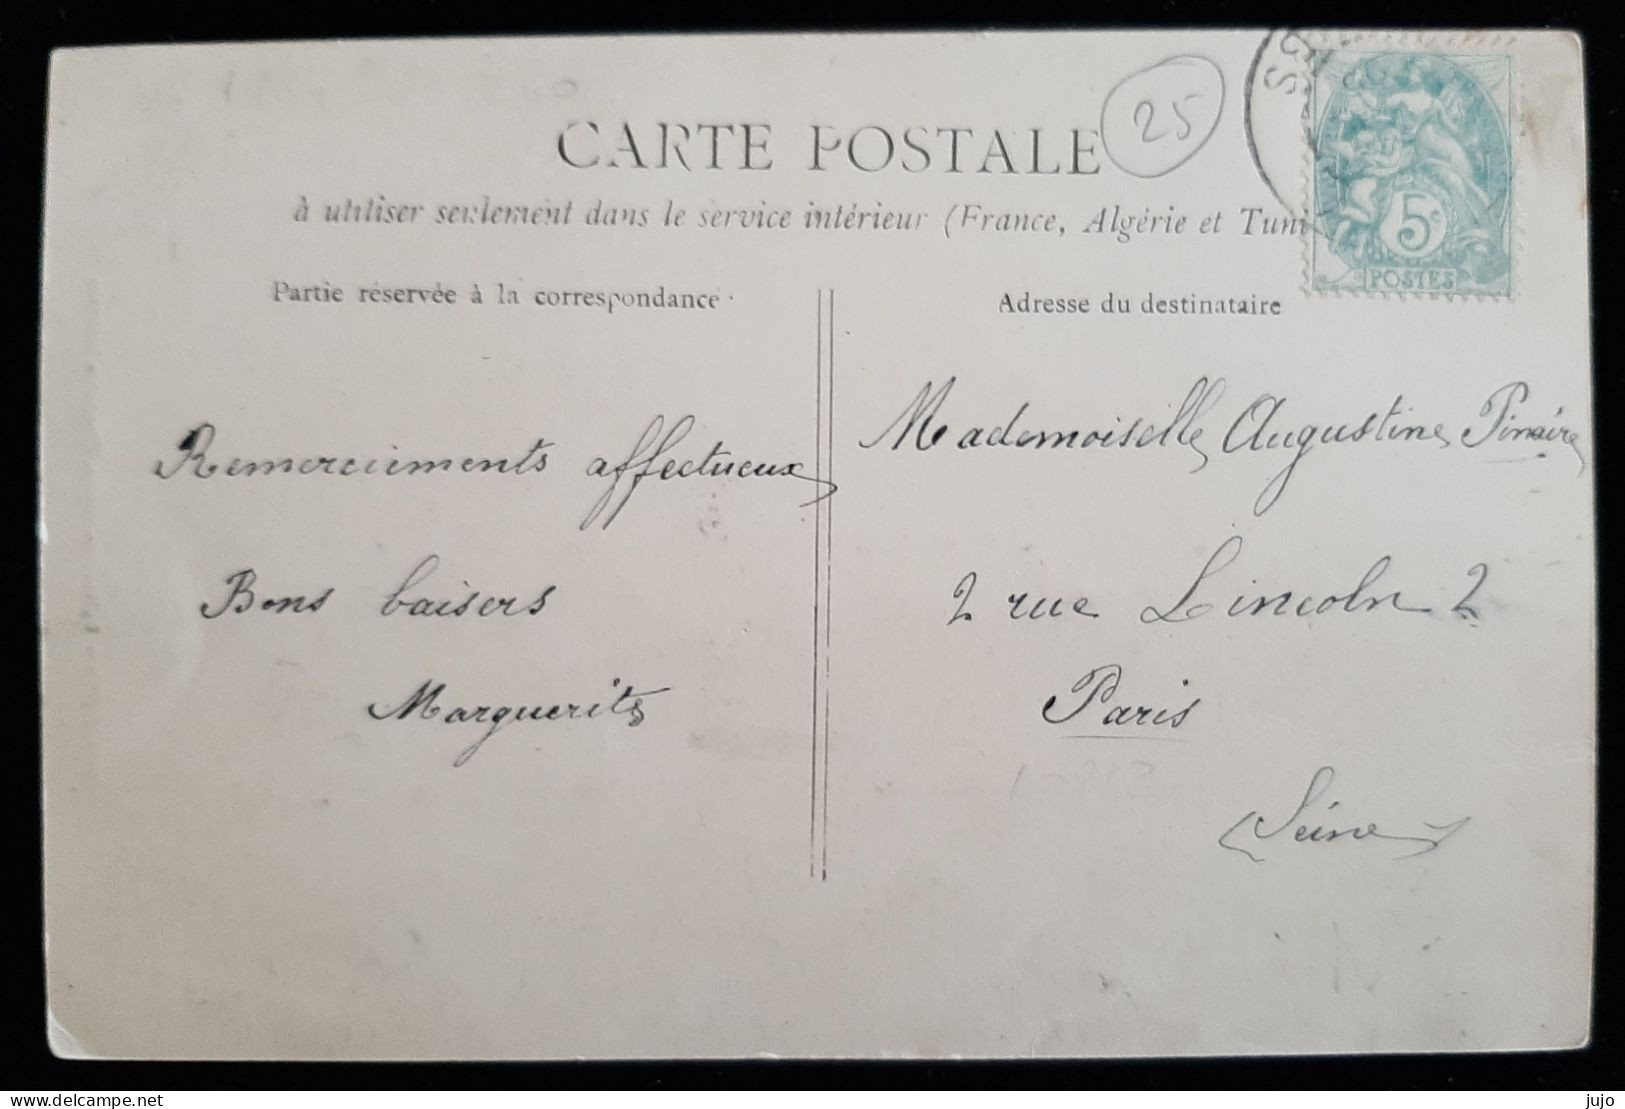 CARTE POSTALE
25
à utiliser seulement dans le service intérieur (France, Algérie et Tuni
5c
POSTES
Partie réservée à la correspondance
Adresse du destinataire
Remerciements affectueux
Bons baisers
Marguerite
Mademoiselle Augustine Pinaire
2 rue Lincoln 2
Paris
(Seine)
delcampe.net
jujo